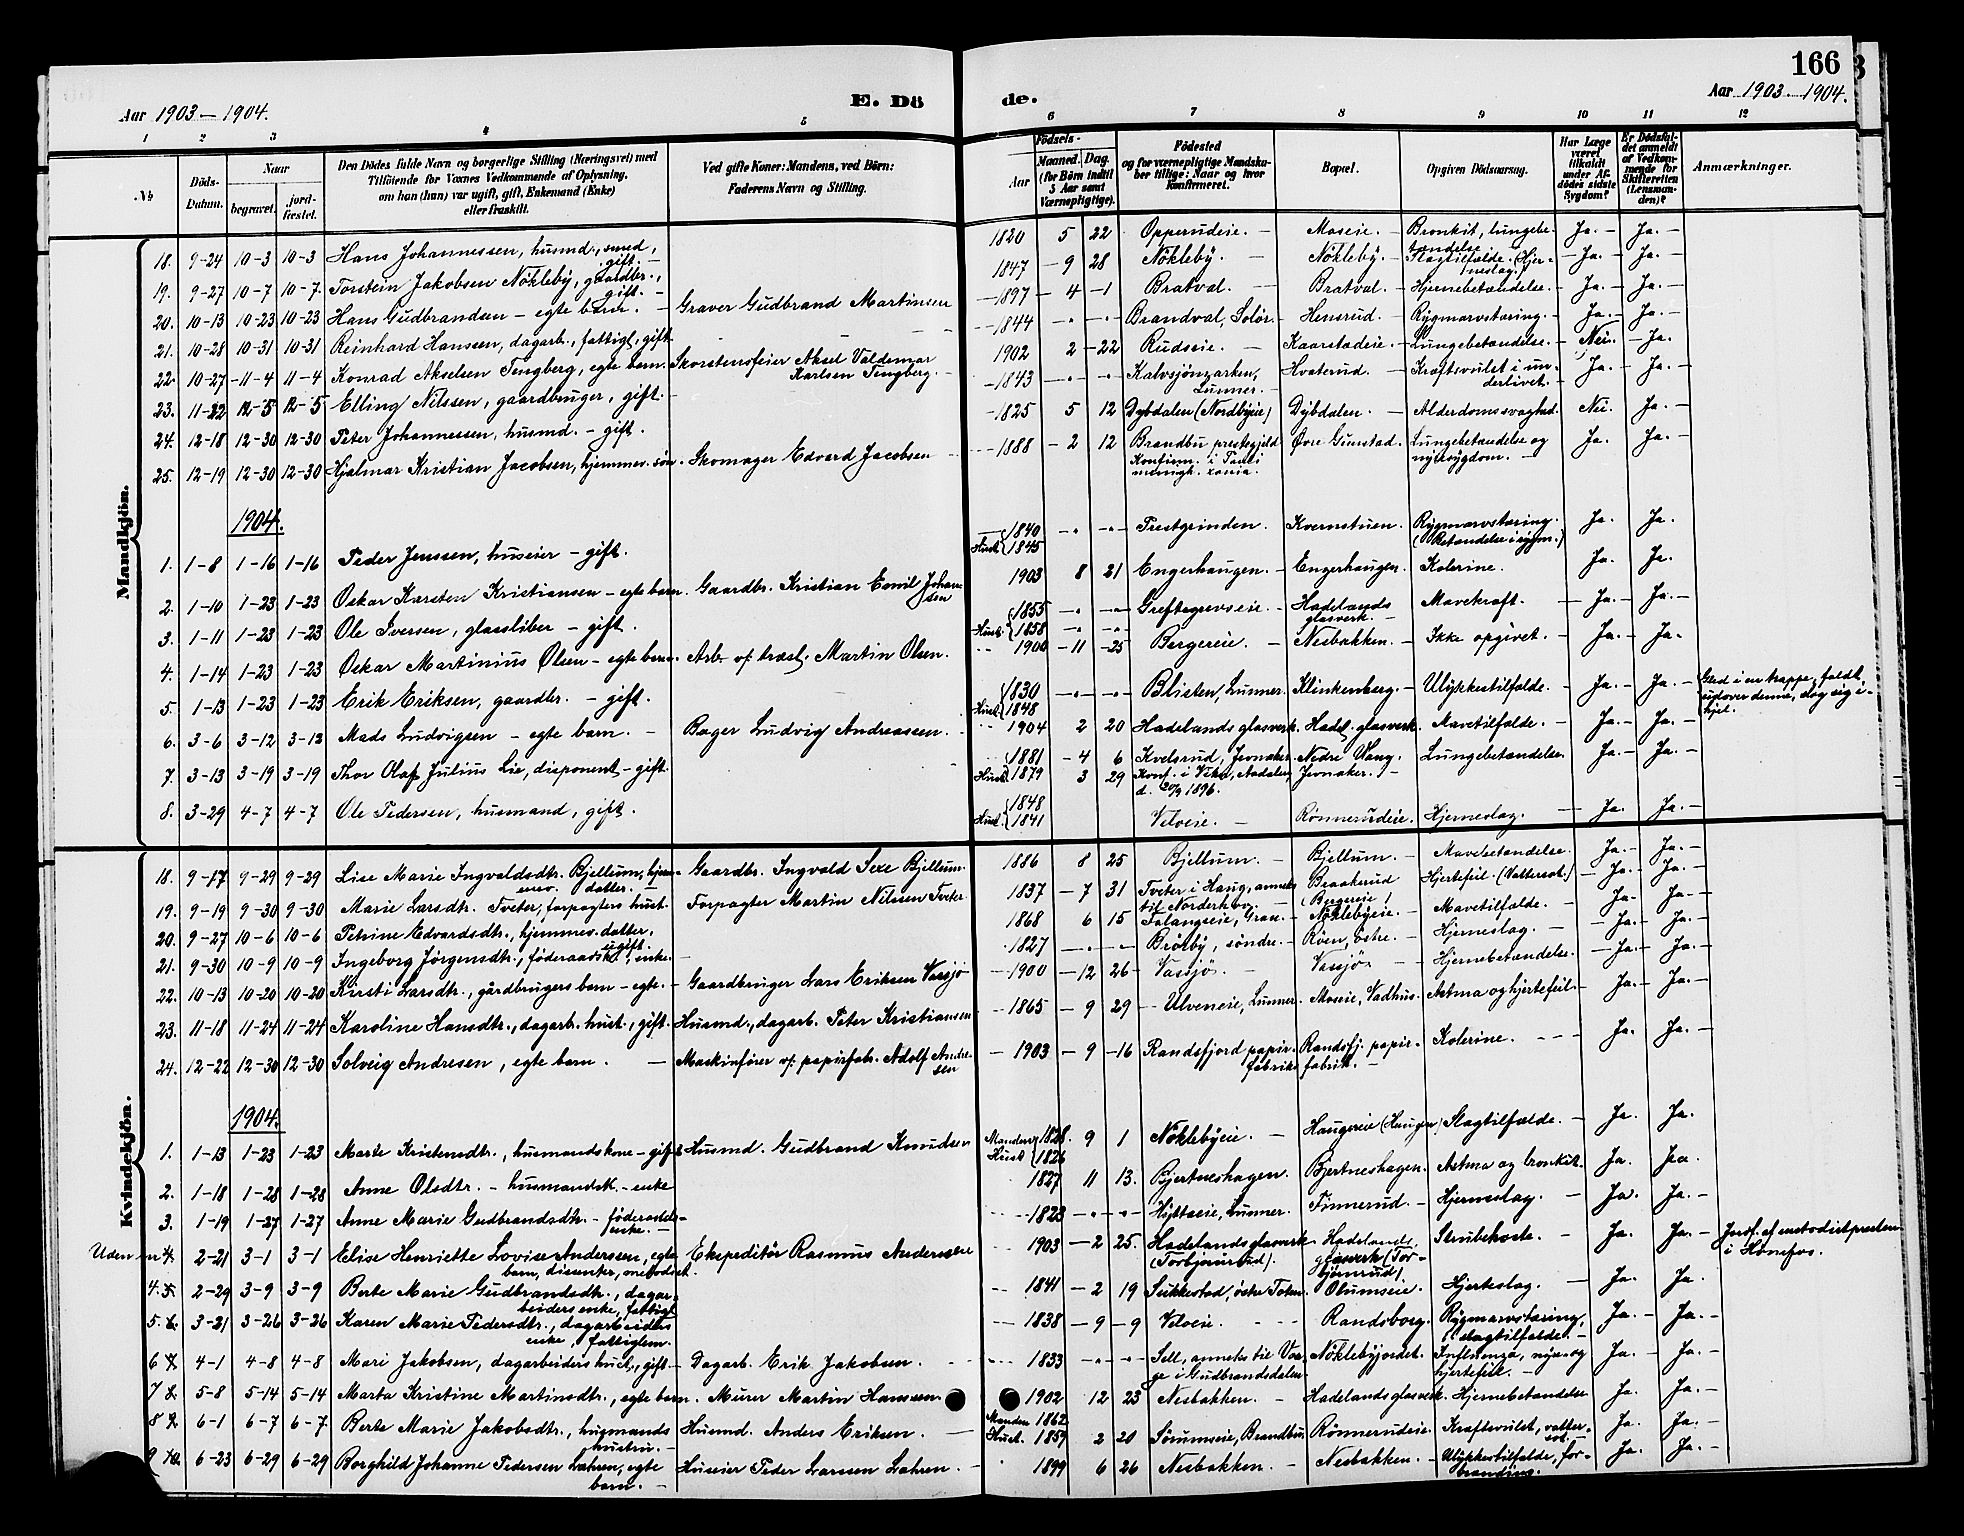 166
Aar 1903 – 1904.
E. Dö
de.
Aar 1903 – 1904.
1 2 3 4 5 6 7 8 9 10 11 12
No
Döds-Datum.
Naar
begravet.
jord-fæstet.
Den Dödes fulde Navn og borgerlige Stilling (Næringsvei) med
Tilföiende for Voxnes Vedkommende af Oplysning,
om han (hun) var ugift, gift, Enkemand (Enke)
eller fraskilt.
Ved gifte Koner: Mandens, ved Börn:
Faderens Navn og Stilling.
Födsels-
Aar
Maaned. Dag.
(for Börn indtil
5 Aar samt
Værnepligtige).
Födested
og for værnepligtige Mandska-
ber tillige: Naar og hvor
Konfirmeret.
Bopæl.
Opgiven Dödsaarsag.
Har Læge
været
tilkaldt
under Af-
dödes sidste
Sygdom?
Er Dödsfal-
det anmeldt
af Vedkom-
mende for
Skifteretten
(Lensman-
den)?
Anmærkninger.
Mandkjön.
18. 9-24 10-3 10-3 Hans Johannessen, husmd., smed, gift. – 1820 5 22 Opperudeie. – Moseie. – Bronkit, lungebetændelse Ja. – Ja. –
19. 9-27 10-7 10-7. Torstein Jakobsen Nökleby, gaardbr., gift. – 1847 – 9 28 Nökleby. – Nökleby. – Slagtilfælde. (Hjerneslag) Ja. – Ja. –
20. 10-13 10-23 10-23 Hans Gudbrandsen – egte barn. – Graver Gudbrand Martinsen – 1897 – 4 – 1 Bratval. – Bratval. – Hjernebetændelse. – Ja. – Ja. –
21. 10-28 10-31 10-31 Reinhard Hanssen, dagarb., fattigl., gift – 1844 – " – " – Brandval, Solör. – Hensrud. – Rygmarvstæring. – Ja. – Ja. –
22. 10-27 – 11-4 11-4 Konrad Akselsen Tengberg, egte barn. Skorstensfeier Aksel Valdemar Karlsen Tengberg. – 1902 2 – 22 Rudseie. – Kaarstadeie. – Lungebetændelse. – Nei. – Ja.
23. 11-22 12-5 12-5 Elling Nilssen, gaardbruger, gift. – – 1843 – " – " – Kalvsjömarken, Lunner. – Hvaterud. – Kræftsvulst i underlivet. – Ja. – Ja. –
24. 12-18 12-30 12-30 Peter Johannessen, husmd. – gift. – 1825 5 12 Dybdalen (Nordbyeie) Dybdalen. – Alderdomssvaghed. Nei. Ja. –
25. 12-19 12-30 12-30 Hjalmar Kristian Jacobsen, hjemmev. søn. Skomager Edvard Jacobsen – 1888 – 2 12 Brandbu prestegjeld Konfirm. i menigh. Øvre Gunstad. Lungebetændelse og nyresygdom. – Ja. Ja. –
1904.
1. 1-8 1-16 1-16 Peder Jenssen, huseier – gift. 1840 Hust. 1845 – " – " – Prestgrinden. Kvernstuen. Rygmarvstæring. (Betændelse i rygm.) Ja. Ja.
2. 1-10 1-23 1-23 Oskar Karsten Kristiansen – egte barn. Gaardbr. Kristian Emil Johansen 1903 8 21 Engerhaugen. – Engerhaugen. Kolerine. Ja. Ja.
3. 1-11 1-23 1-23 Ole Iversen, glassliber – gift. 1855 Hust. 1858 – " – " – Greftegrevseie. – Hadelands glasverk. – Mavekræft. – Ja. – Ja. –
4. 1-14 1-23 1-23 Oskar Martinius Olsen – egte barn. Arb. v/ træsl. Martin Olsen. 1900 – 11 – 25 Bergereie. – Nesbakken. – Ikke opgivet. – Ja. – Ja.
5. 1-13 1-23 1-23 Erik Eriksen, gaardbr. – gift. 1830 Hust. 1848 – " – " – Blisten, Lunner. Klinkenberg. – Ulykkestilfælde. – Ja. – Ja. – Gled i en trappe, faldt udover denne, slog sig ihjel.
6. 3-6 3-12 3-12 Mads Ludvigsen – egte barn. – Bager Ludvig Andreassen. – 1904 2 20 Hadelands glasverk. Hadel. glasverk. – Mavetilfælde. – Ja. – Ja. –
7. 3-13 3-19 3-19 Thor Olaf Julius Lie, disponent – gift. 1881 – 4 6 Hust. 1879 3 29 Kvelsrud, Jevnaker. Konf. i Viker, Aadalen, d. 20/9 1896. Nedre Vang, Jevnaker. – Lungebetændelse. Ja. – Ja. –
8. 3-29 4-7 4-7 Ole Pedersen, husmand, gift. 1848 Hust. 1841 Velveie. – Rönnerudeie. Hjerneslag. – Ja. – Ja. –
Kvindekjön.
18. 9-17 9-29 9-29 Lise Marie Ingvaldsdtr. Bjellum, hjemmev. datter. – Gaardbr. Ingvald Sexe Bjellum 1886 8 25 Bjellum. – Bjellum. – Mavebetændelse. Ja. – Ja. –
19. 9-19 9-30 9-30 Marie Larsdtr. Tveter, forpagters hust. Forpagter Martin Nilssen Tveter. 1837 – 7 31 Tveter i Haug, anneks til Norderhov. – Braakerud (Bergereie) Hjertefeil. (Vattersot.) – Ja. – Ja. –
20. 9-27 10-6 10-6 Petrine Edvardsdtr., hjemmev. datter, ugift. 1868 6 15 Falangseie, Gran. – Nöklebyeie. – Mavetilfælde. – Ja. – Ja. –
21. 9-30 10-9 10-9 Ingeborg Jörgensdtr., föderaadsk., enke – 1827 – " – " – Bröby, söndre. – Röen, östre. – Hjerneslag. – Ja. – Ja. –
22. 10-13 10-20 10-20 Kirsti Larsdtr., gårdbrugers barn – egte. – Gaardbruger Lars Eriksen Vassjö – 1900 – 12 26 – Vassjö. – Vassjö. – Hjernebetændelse. – Ja. – Ja. –
23. 11-18 11-24 11-24 Karoline Hansdtr., dagarb. hust., gift. – Husmd., dagarb. Peter Kristiansen – 1865 – 9 29 – Ulveneie, Lunner. Moseie, Vadhus. Astma og hjertefeil. – Ja. – Ja. –
24. 12-22 12-30 12-30 Solveig Andresen, egte barn. – Maskinförer v/ papirfabr. Adolf Andresen – 1903 – 9 – 16 Randsfjord papirfabrik Randsfj. papirfabrik. – Kolerine. – Ja. Ja. –
1904.
1. 1-13 1-23 1-23 Marte Kristensdtr., husmandskone – gift. Husmd. Gudbrand Knudsen Manden 1828. Hust. 1826 9 1 Nöklebyeie. – Haugereie (Haugen) Slagtilfælde. – Ja. Ja.
2. 1-18 1-28 1-28 Anne Olsdtr. – husmandsk. – enke 1827 11 13. Bjertneshagen. Bjertneshagen. Astma og bronkit. Ja. Ja.
3. 1-19 1-27 1-27 Anne Marie Gudbrandsdtr. – föderaads-enke. – – 1823 – " – " – Hytteeie, Lunner. Finnerud. – Hjerneslag. – Ja. Ja. –
Uden nr. 4. 2-21 3-1 3-1 Elise Henriette Lovise Anderssen, egte barn, dissenter, metodist. Ekspeditör Rasmus Anderssen – 1903 – 2 25. Hadelands glasverk (Torbjörnrud). – Hadelands glasverk (Torbjörnrud) Strubehoste. – Ja. Ja. – Jordf. af metodistpresten i Hönefos.
4. 5. 2-29 3-9 3-9 Berte Marie Gudbrandsdtr., dagarbeiders enke, fattigl. 1841 – 2 19 Sukkestad, östre Toten. Olumseie. Hjerteslag. – Ja. Ja.
5. 6. 3-21 3-26 3-26 Karen Marie Pedersdtr., dagarbeiders enke, fattiglem. 1838 – 9 – 9 Velveie. – Randsborg. Rygmarvstæring, slagtilfælde. – Ja. – Ja. –
6 7. 4-1 4-8 4-8 Mari Jakobsen, dagarbeiders hust., gift. – Dagarb. Erik Jakobsen. 1833 – " – " – Sell, anneks til Vaage i Gudbrandsdalen. Nöklebyjordet. Influenza, nyre- og hjertefeil. – Ja. – Ja. –
7 8. 5-8 5-14 5-14 Marta Kristine Martinsdtr., egte barn. Murer Martin Hanssen 1902 12 23 Nesbakken. – Hadelands glasverk. Hjernebetændelse Ja. Ja. –
8 9. 6-1 6-7 6-7 Berte Marie Jakobsdtr., husmands hustru. – Husmd. Anders Eriksen. – Manden 1862 Hust. 1859 2 20 Sörumseie, Brandbu. Rönnerudeie. Kræftsvulst, vattersot. – Ja. Ja. –
9 10. 6-23 6-29 6-29 Borghild Johanne Pedersen Lahren, egte barn. – Huseier Peder Larssen Lahren. – 1899 6 26 Nesbakken. – Nesbakken. – Ulykkestilfælde, forbrænding. Ja. Ja. –